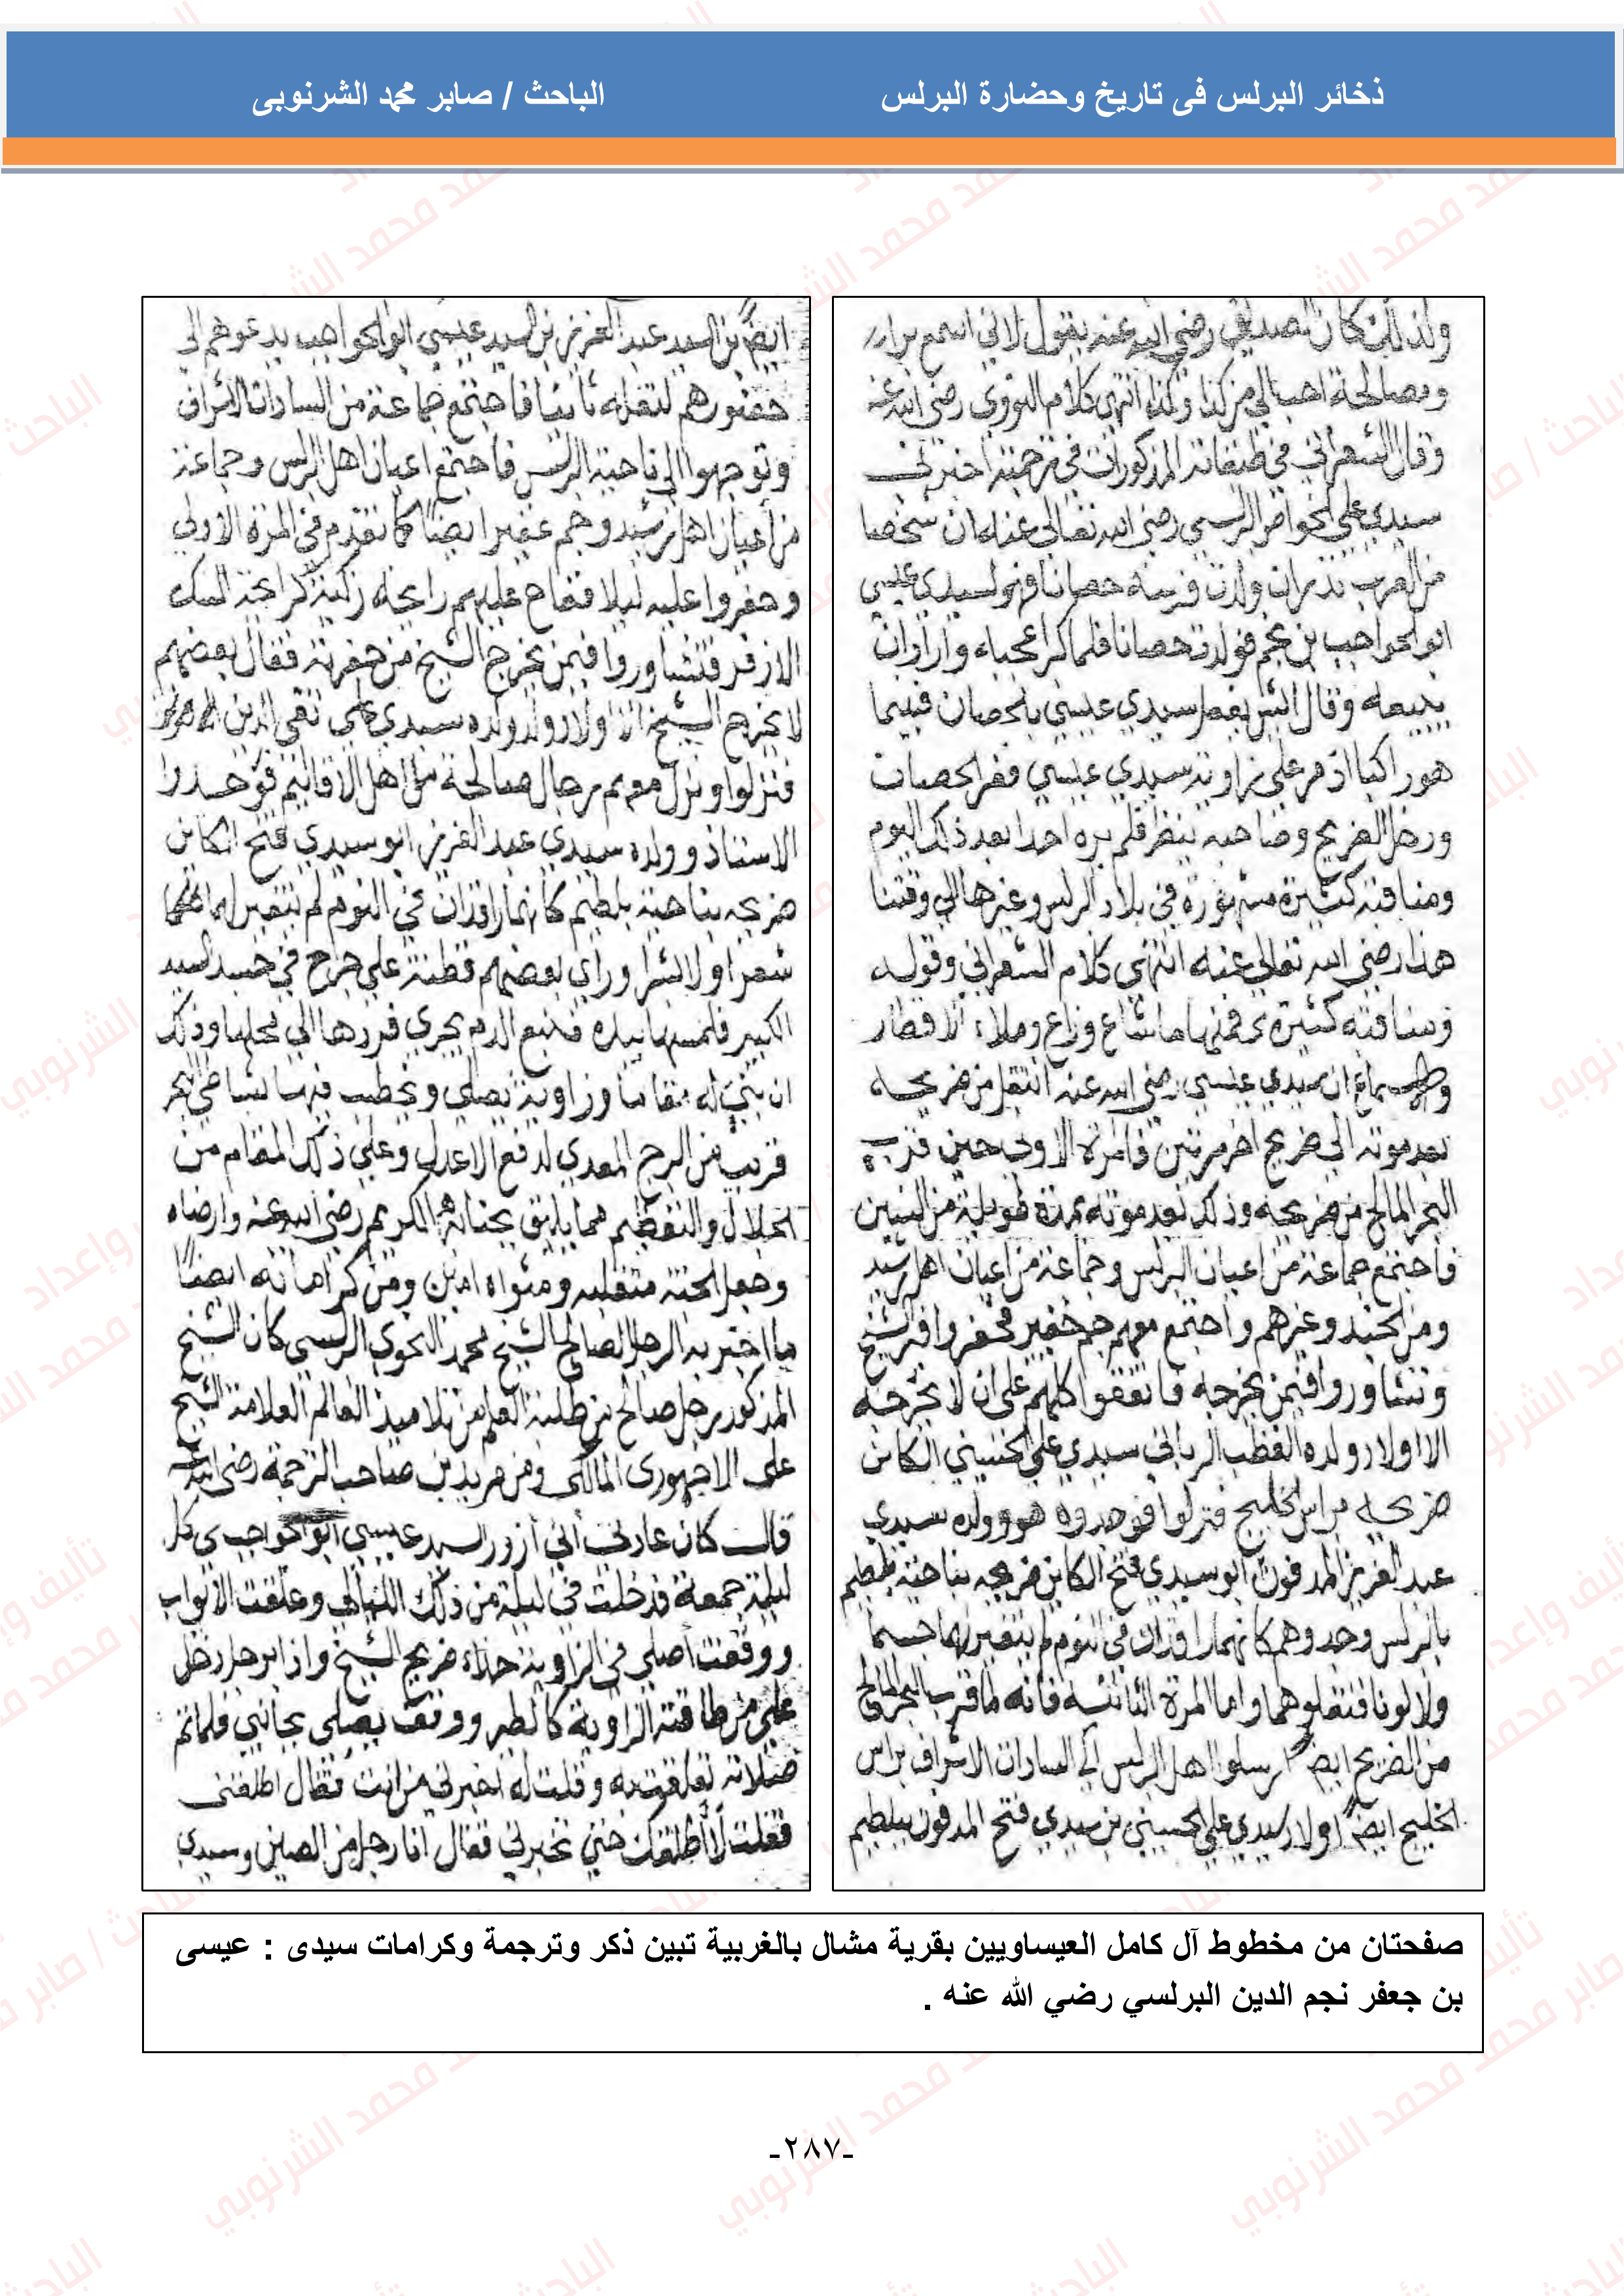 ذخائر البرلس فى تاريخ وحضارة البرلس
الباحث / صابر محمد الشرنوبى
ولذلك كان الصديق رضي الله عنه يقول لاني اسمع
ومصالحة احب الي من كذا وكذا انتهى كلام النووي رضي الله عنه
وقال الشعراني في طبقاته المذكورات في ترجمته اخبرني
سيدي علي الخواص البرلسي رضي الله تعالى عنه ان شخصا
من العرب نذر ان ولدت فرسه حصانا فهو لسيدي عيسي
ابو الخواجب بن نجم فولدت حصانا فلما كبر اعجباه واراد ان
يبيعه وقال ايش يعمل سيدي عيسي بالحصان فبينما
هو راكبا اذ مر علي زاوية سيدي عيسي ففر الحصان
ودخل الضريح وصاحبه ينظر فلم يره احدا بعد ذلك اليوم
ومناقبه كثيرة مشهورة في بلاد البرلس وغيرها الي وقتنا
هذا رضي الله تعالي عنه انتهى كلام الشعراني وقوله
ومناقبه كثيرة فمنها ما شاع وذاع وملاء الاقطار
ان سيدي عيسي رضي الله عنه انتقل من ضريحه
بعد موته الي ضريح اخر مرتين فالمرة الاولي حين قرب
البحر المالح من ضريحه وذلك بعد موته بمدة طويلة من السنين
فاجتمع جماعة من اعيان البرلس وجماعة من اعيان اهل رشيد
ومن الجند وغيرهم واجتمع معهم جم غفير فحفروا قبر الشيخ
وتشاوروا فيمن يخرجه فاتفقوا كلهم علي ان لا يخرجه
الا اولاد ولده القطب الرباني سيدي علي الحسيني الكائن
ضريحه براس الخليج فنزلوا فوجدوه هو وولده سيدي
عبد العزيز المدفون ابو سيدي فتح الكائن ضريحه بناحية بلطيم
بالبرلس وجدوهم كانهما راقدان في النوم لم يتغير لهما جسما
ولا لونا فنقلوهما واما المرة الثانية فانه لما قرب البحر المالح
من الضريح ايضا ارسلوا اهل البرلس الي السادات الاشراف براس
الخليج ايضا اولاد سيدي علي الحسيني بن سيدي فتح المدفون ببلطيم
ايضا بن السيد عبد العزيز بن السيد عيسي ابو الخواجب يدعوهم الي
حضورهم لنقله ثانيا فاجتمع جماعة من السادات الاشراف
وتوجهوا الي ناحية البرلس فاجتمع اعيان اهل البرلس وجماعة
من اعيان اهل رشيد وجم غفير ايضا كما تقدم في المرة الاولي
وحفروا عليه ليلا ففاح عليهم رايحة زكية كرايحة المسك
الازفر فتشاوروا فيمن يخرج الشيخ من حفرته فقال بعضهم
لا يخرج الشيخ الا اولاد ولده سيدي علي تقي الدين
فنزلوا ونزل معهم رجال صالحة من اهل الاقاليم فوجدوا
الاستاذ وولده سيدي عبد العزيز ابو سيدي فتح الكائن
ضريحه بناحية بلطيم كانهما راقدان في النوم لم يتغير لهما
شعرا ولا بشرا وراي بعضهم قطنة علي جرح في جسد السيد
الكبير فلمسها بيده فنبع الدم يجري فردها الي محلها وذلك
ان بني له مقاما وزاوية تصلي وتخطب فيها بشاطي البحر
قريب من البرج المعدي لدفع الاعداء وعلي ذلك المقام من
الجلال والتعظيم مما يليق بجنابه الكريم رضي الله عنه وارضاه
وجعل الجنة متقلبه ومثواه امين ومن كراماته ايضا
ما اخبر به الرجل الصالح الشيخ محمد النحوي البرلسي كان الشيخ
المذكور رجل صالح من طلبة العلم من تلاميذ العالم العلامة الشيخ
علي الاجهوري المالكي ومن مريدين صاحب الترجمة رضي الله عنه
قال كان عادتي أني أزور السيد عيسي ابو الخواجب كل
ليلة جمعة فدخلت في ليلة من ذلك الليالي وغلقت الابواب
ووقفت أصلي في الزاوية حذاء ضريح الشيخ واذا برجل دخل
علي من طاقة الزاوية كالطير ووقف يصلي بجانبي فلما تم
صلاته تعلقت به وقلت له اخبرني من انت فقال اطلقني
فقلت لا أطلقك حتي تخبرني فقال انا رجل من الصين وسيدي
صفحتان من مخطوط آل كامل العيساويين بقرية مشال بالغربية تبين ذكر وترجمة وكرامات سيدى : عيسى
بن جعفر نجم الدين البرلسي رضي الله عنه .
-٢٨٧-